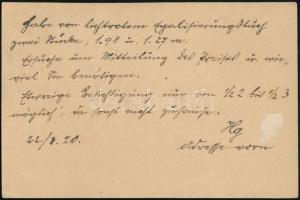 Habe von lichtrotem Egalisierungstuch
zwei Stücke, 1.98 u. 1.27 m.
Ersuche um Mitteilung des Preises u. wie-
viel Sie benötigen.
Etwaige Besichtigung nur von 1/2 2 bis 1/2 3
möglich, da sonst nicht zuhause.
Hg
Adresse vorn
22/8. 20.